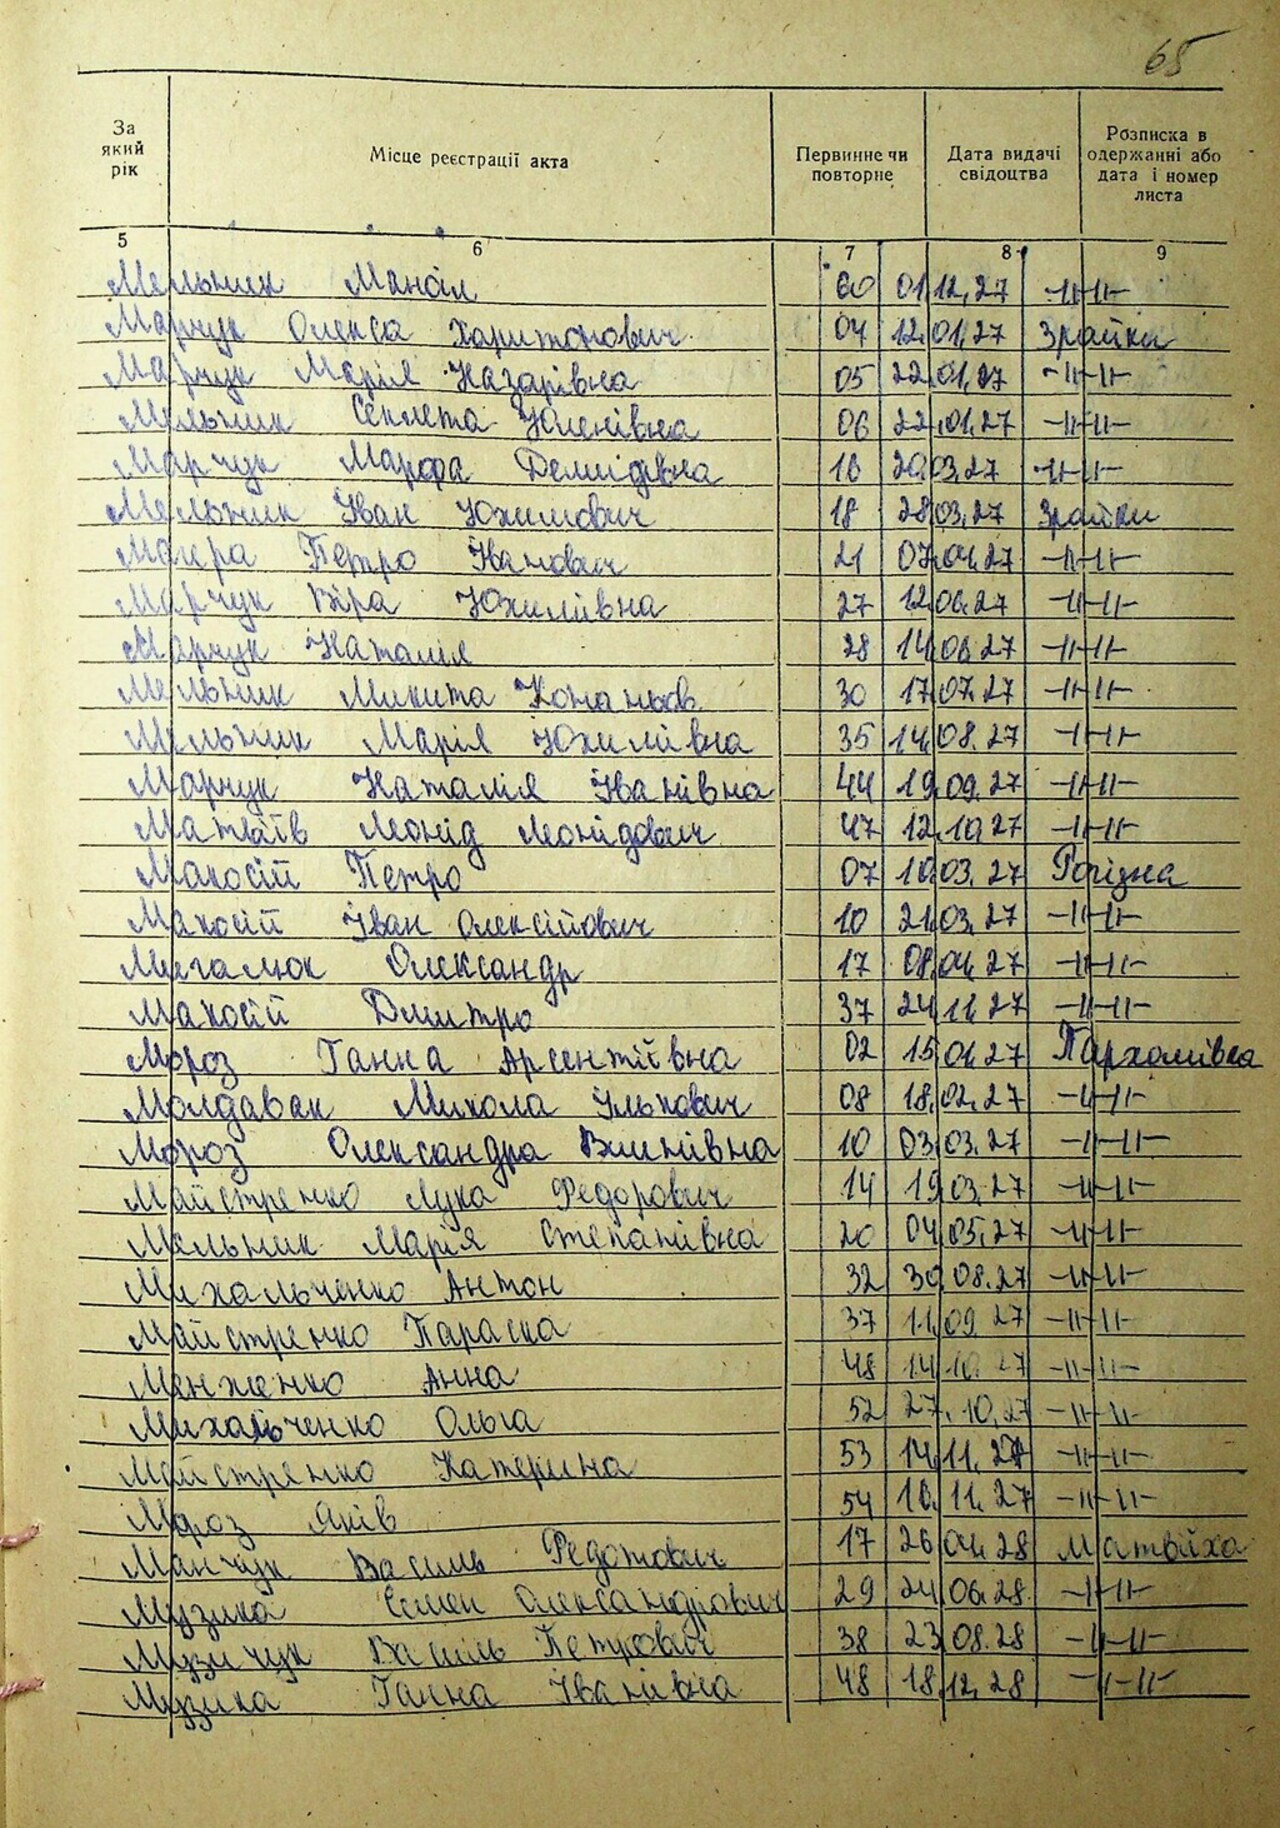 65
За який рік
Місце реєстрації акта
Первинне чи повторне
Дата видачі свідоцтва
Розписка в одержанні або дата і номер листа
5 6 7 8 9
Мельник 60 01.12.27 -||-||-
Марчук Олекса Харитонович 04 12.01.27 Зрайки
Марчук Марія Назарівна 05 22.01.27 -||-||-
Мельник Секлета 06 22.01.27 -||-||-
Марчук Марфа Демидівна 16 20.03.27 -||-||-
Мельник Іван Юхимович 18 28.03.27 Зрайки
Петро Іванович 21 07.04.27 -||-||-
Марчук Віра Юхимівна 27 12.06.27 -||-||-
Марчук Наталія 28 14.06.27 -||-||-
Мельник Микита 30 17.07.27 -||-||-
Мельник Марія Юхимівна 35 14.08.27 -||-||-
Марчук Наталія Іванівна 44 19.09.27 -||-||-
Матвіїв Леонід Леонідович 47 12.10.27 -||-||-
Макосій Петро 07 10.03.27 Рогізна
Макосій Іван Олексійович 10 21.03.27 -||-||-
Мигалюк Олександр 17 08.04.27 -||-||-
Макосій Дмитро 37 24.11.27 -||-||-
Мороз Ганна Арсентіївна 02 15.01.27 Пархомівка
Молдаван Микола Ількович 08 18.02.27 -||-||-
Мороз Олександра 10 03.03.27 -||-||-
Майстренко Лука Федорович 14 19.03.27 -||-||-
Мельник Марія Степанівна 20 04.05.27 -||-||-
Михальченко Антон 32 30.08.27 -||-||-
Майстренко Параска 37 11.09.27 -||-||-
Менженко Анна 48 14.10.27 -||-||-
Михальченко Ольга 52 27.10.27 -||-||-
Майстренко Катерина 53 14.11.27 -||-||-
Мороз Яків 54 16.11.27 -||-||-
Манчук Василь Федотович 17 26.04.28 Матвіїха
Музика Семен Олександрович 29 24.06.28 -||-||-
Музичук Василь Петрович 38 23.08.28 -||-||-
Музика Ганна Іванівна 48 18.12.28 -||-||-